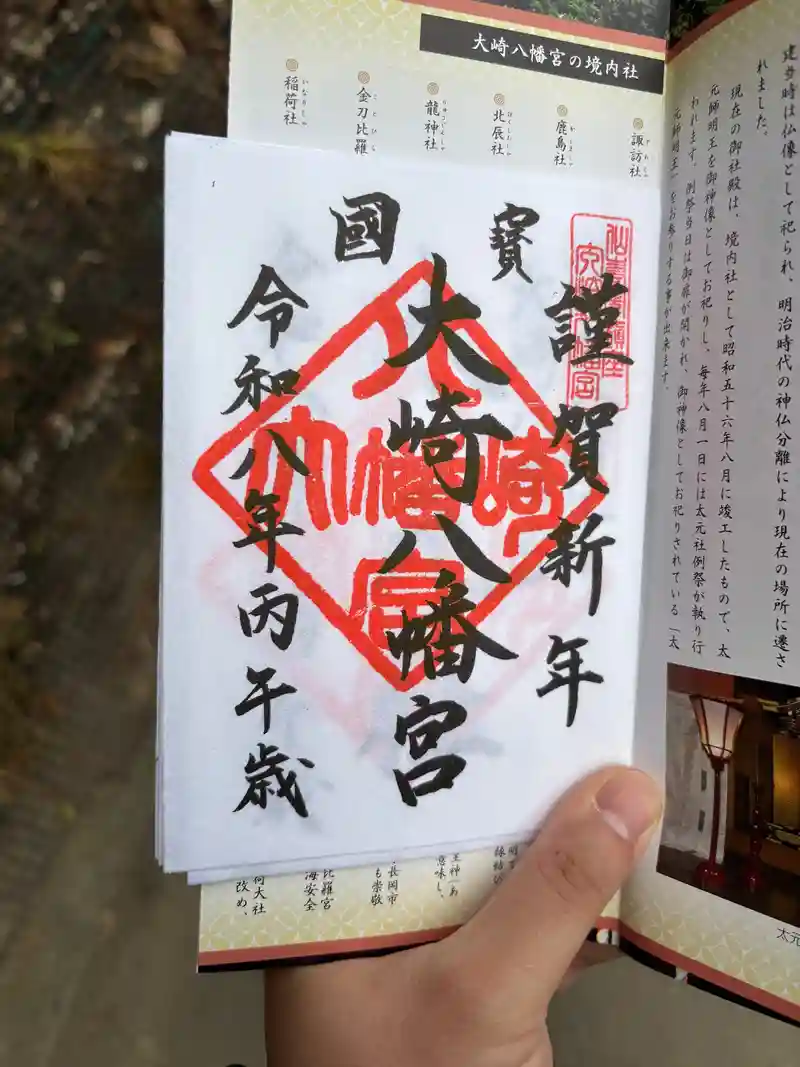 大崎八幡宮の境内社
諏訪社
鹿島社
北辰社
龍神社
金刀比羅
稲荷社
謹賀新年
寳
大崎八幡宮
國
令和八年丙午歳
大崎八幡宮
建当時は仏像として祀られ、明治時代の神仏分離により現在の場所に遷さ
れました。
現在の御社殿は、境内社として昭和五十六年八月に竣工したもので、太
元師明王を御神像としてお祀りし、毎年八月一日には太元社例祭が執り行
われます。例祭当日は御扉が開かれ、御神像としてお祀りされている「太
元師明王」をお参りする事が出来ます。
縁結び
王神「あ
意味し、
長岡市
も崇敬
比羅宮
海安全
荷大社
改め、
太元